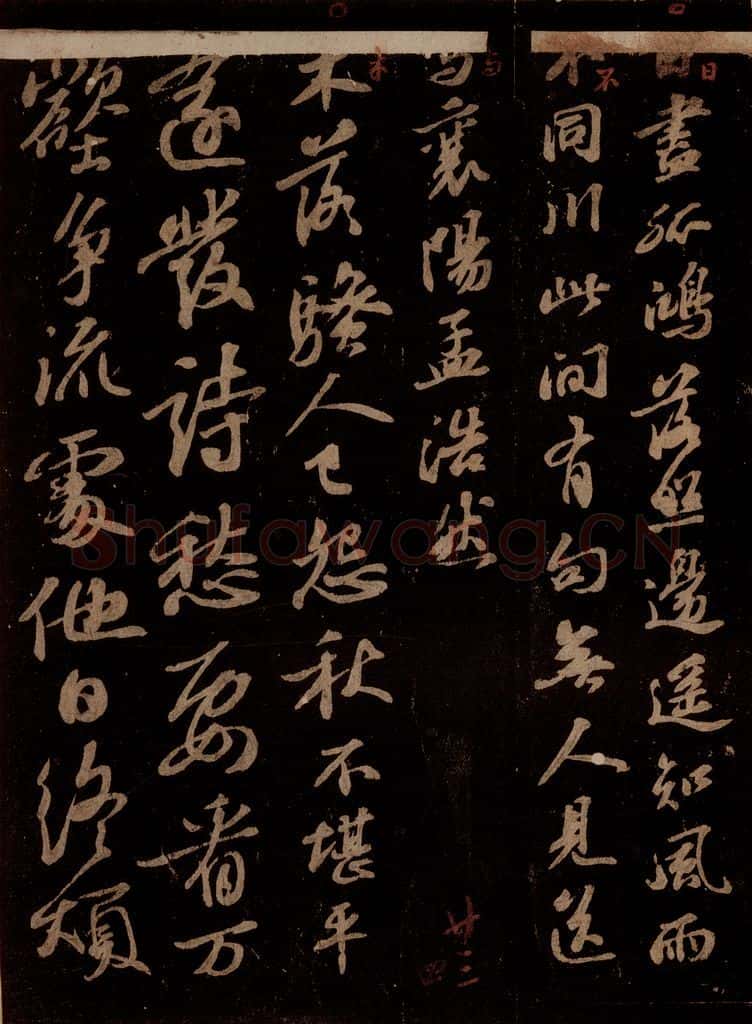 盡孤鴻落照邊遥知風雨
不同川此间有句無人見送
与襄陽孟浩然
木落騷人已怨秋不堪平
遠發詩愁要看万
壑争流處他日終煩
日
不
与
廿三
四
Shufawang.CN